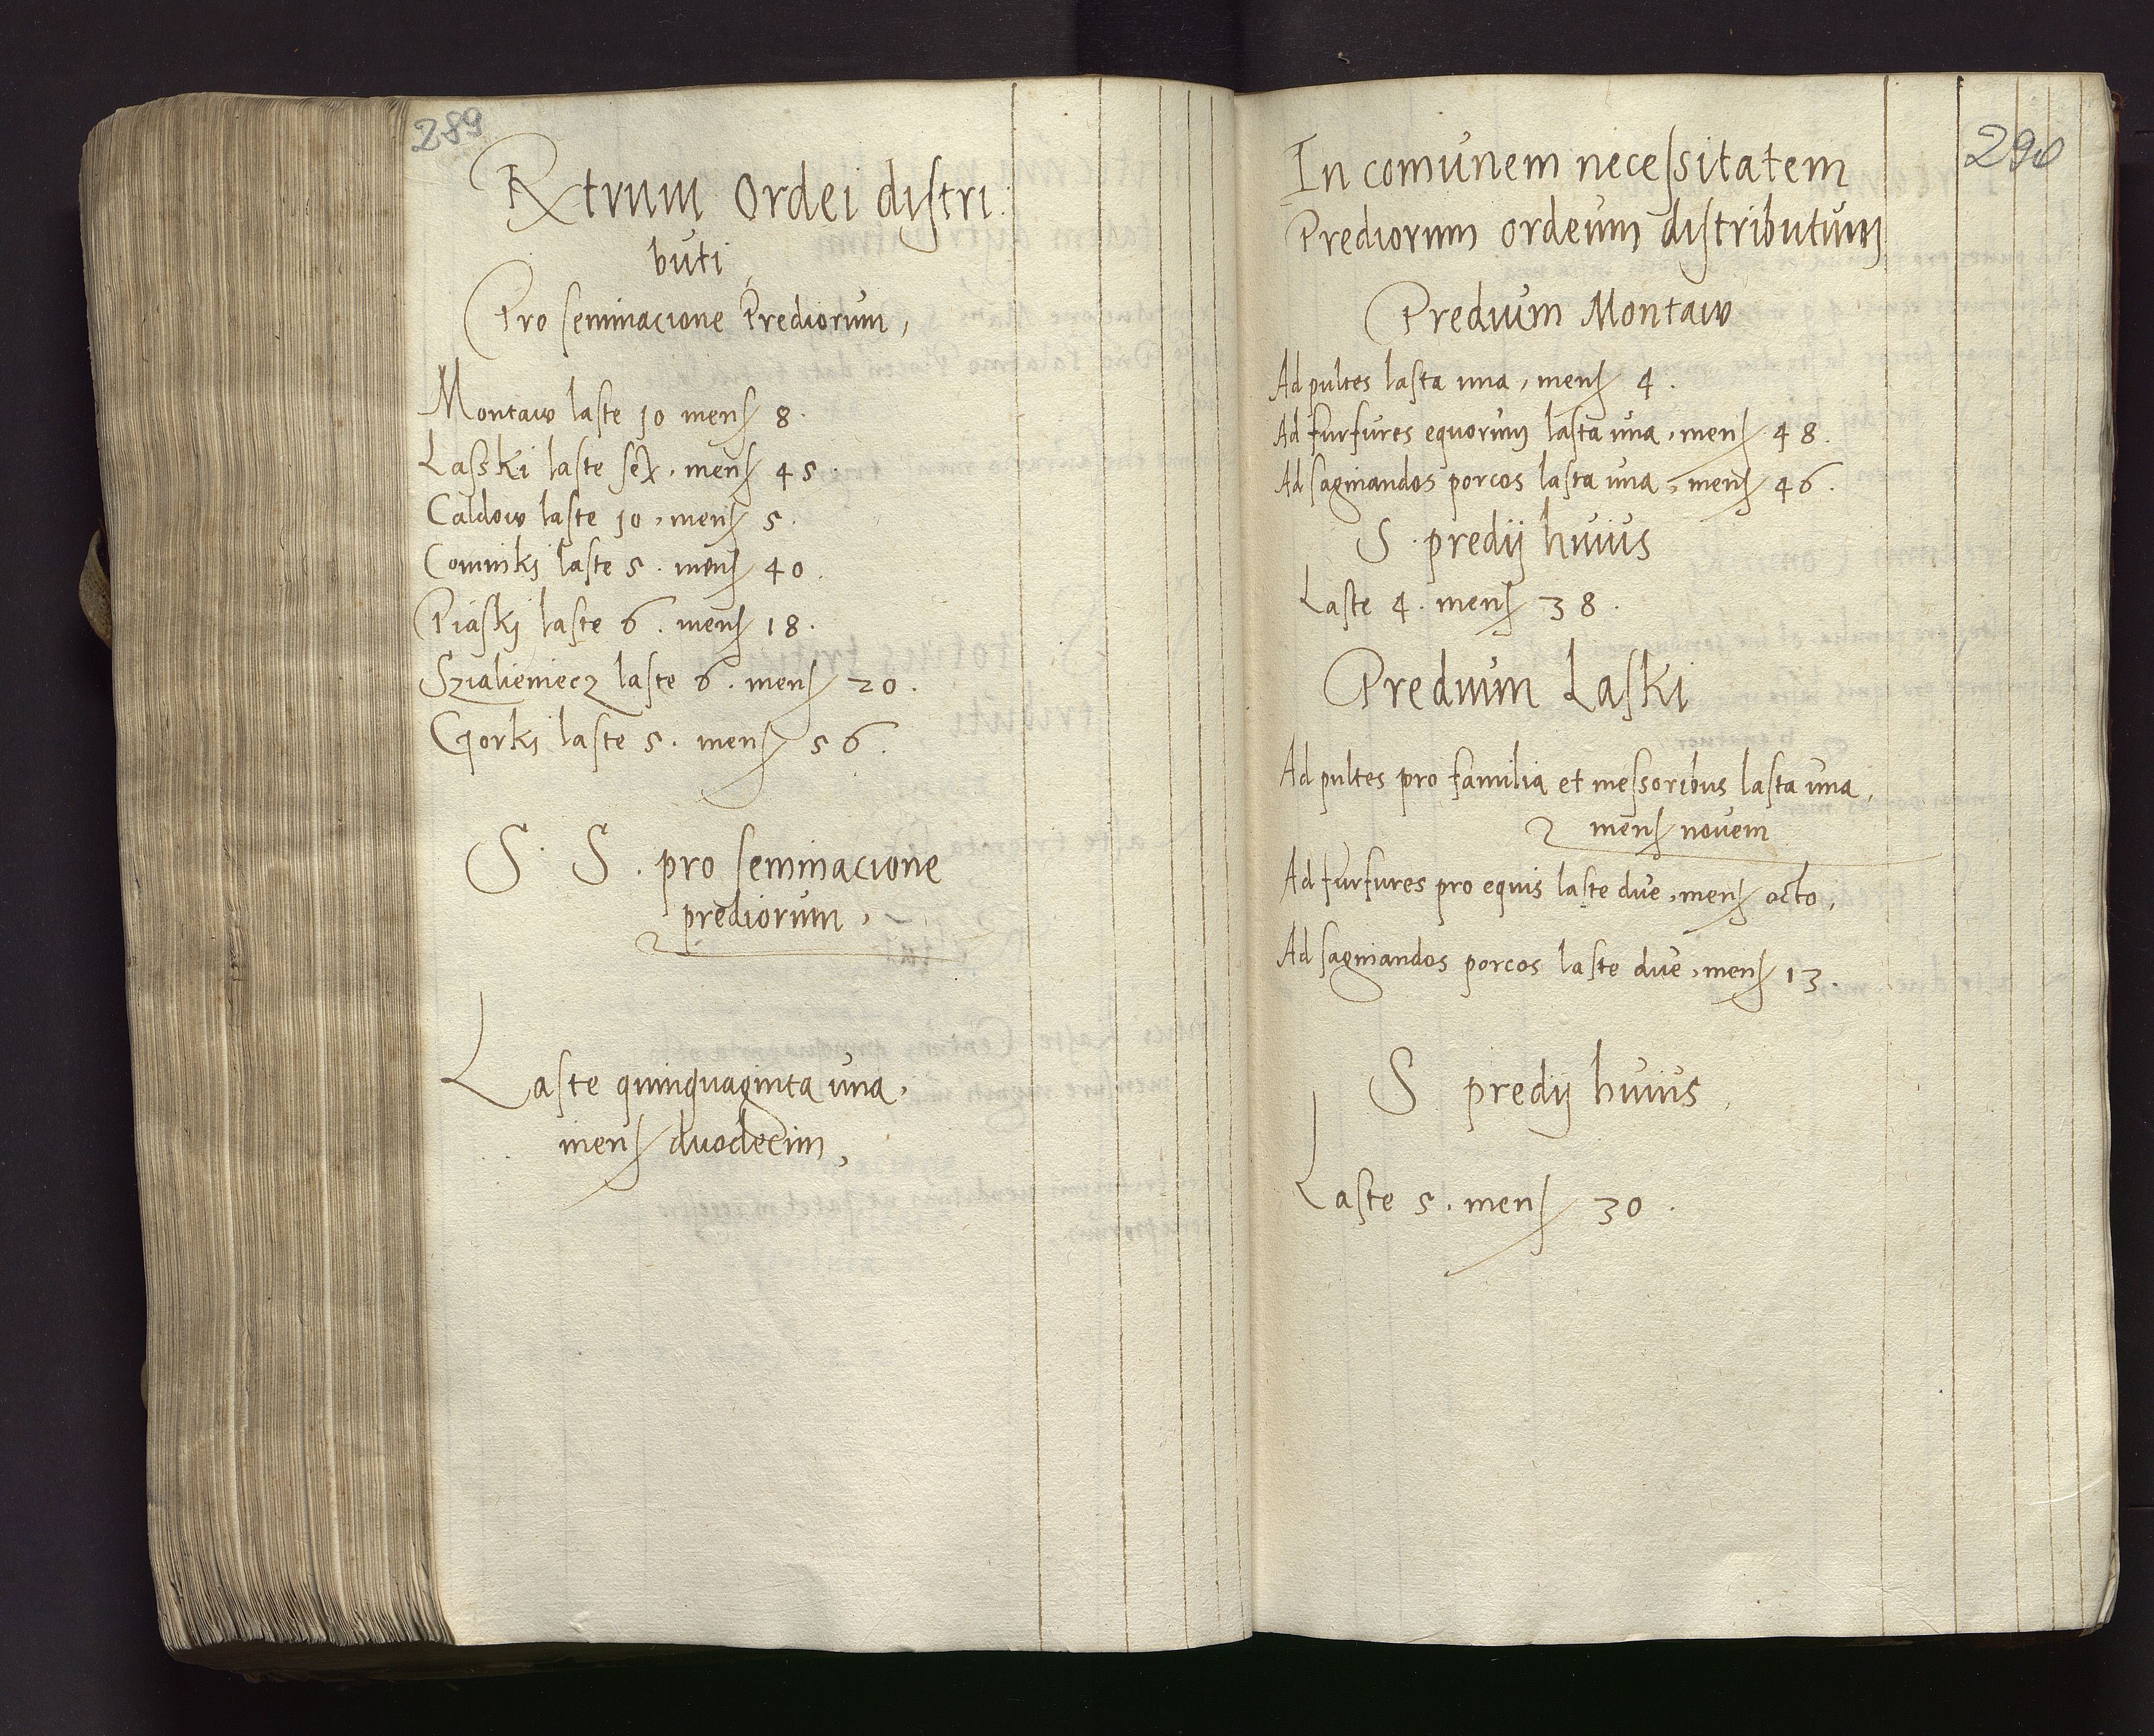 289
Rxtrum Ordei distri
buti
Pro seminacione Prediorum,
Montaw laste 10 mens 8.
Lasski laste sex. mens 45.
Caldow laste 10, mens 5.
Comniki laste 5. mens 40.
Piaski laste 6. mens 18.
Szialieniecz laste 6. mens 20.
Gorki laste 5. mens 56.
S. S. pro seminacione
prediorum,
Laste quinquaginta una,
mens duodecim,
290
In comunem necessitatem
Prediorum ordeum distributum
Predium Montaw
Ad pultes lasta una, mens 4.
Ad furfures equorum lasta una, mens 48.
Ad saginandos porcos lasta una, mens 46.
S. predij huius
Laste 4. mens 38.
Predium Laski
Ad pultes pro familia et messoribus lasta una,
mens novem
Ad furfures pro equis laste due, mens octo,
Ad saginandos porcos laste due, mens 13.
S. predij huius
Laste 5. mens 30.